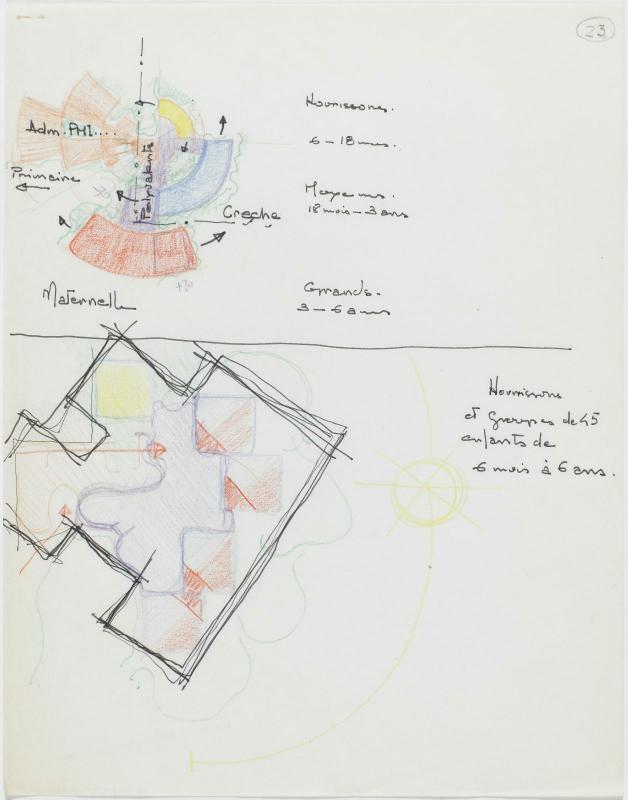 23
Nourrissons.
Adm. PMI....
6 – 18 mois.
Polyvalente
Primaire
Moyens.
18 mois – 3 ans
Crèche
+70
Maternelle
Grands.
3 – 6 ans
Nourrissons
et Groupes de 45
enfants de
6 mois à 6 ans.